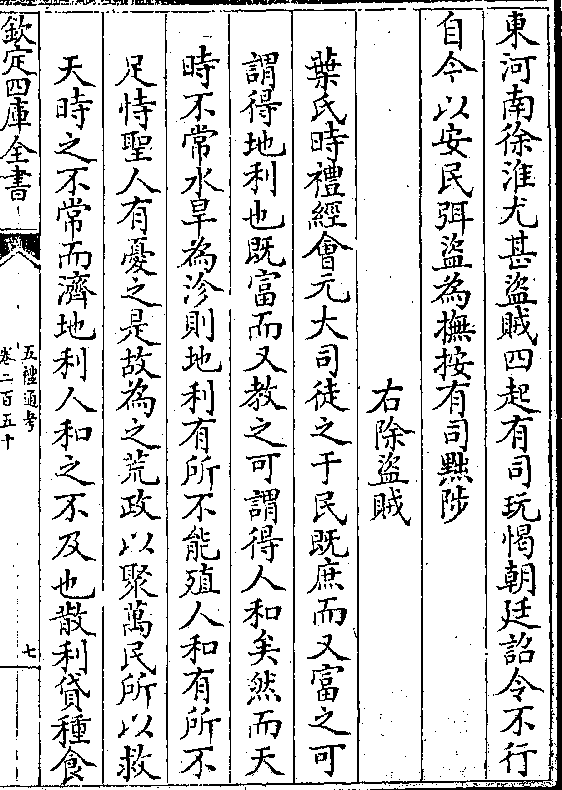 東河南徐淮尤甚盜賊四起有司玩愒朝廷詔令不行
自今以安民弭盜為撫按有司黜陟
右除盜賊
葉氏時禮經會元大司徒之于民既庶而又富之可
謂得地利也既富而又教之可謂得人和矣然而天
時不常水旱為沴則地利有所不能殖人和有所不
足恃聖人有憂之是故為之荒政以聚萬民所以救
天時之不常而濟地利人和之不及也散利貸種食
欽定四庫全書
五禮通考
卷二百五十
七